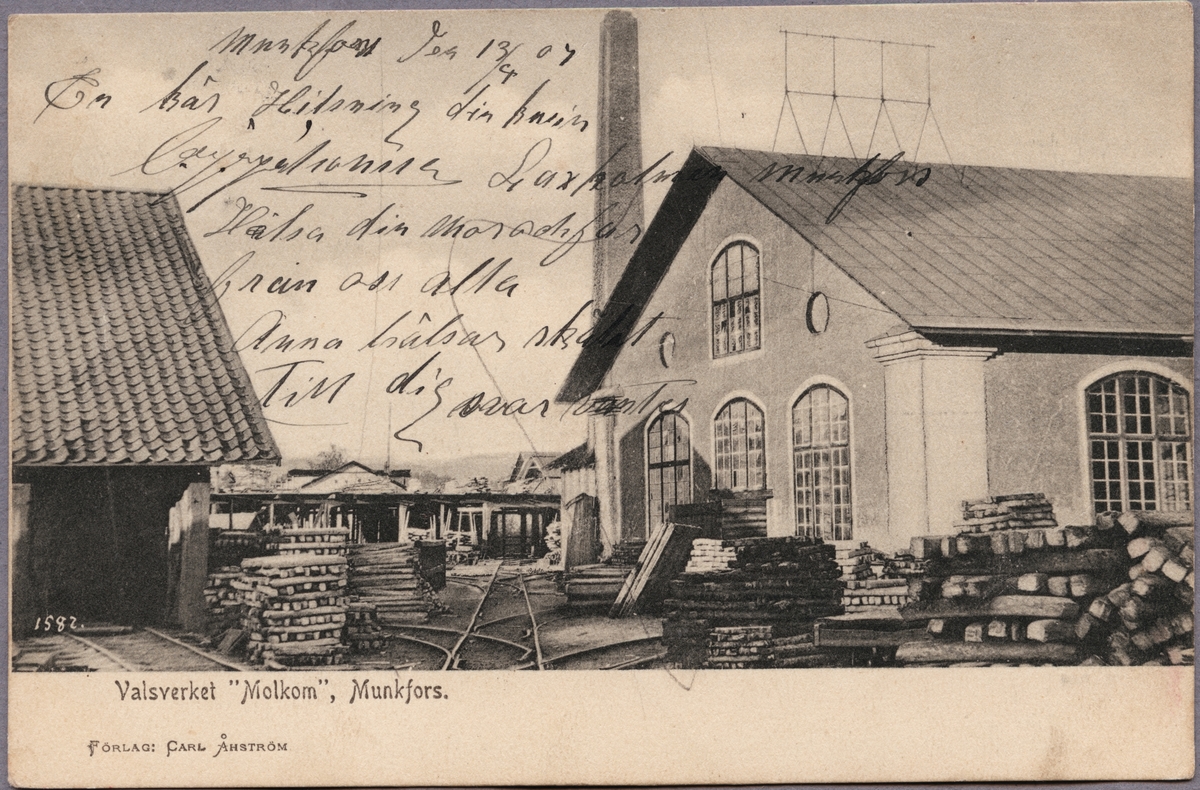 Munkfors Den 13/9 07
En kär Hilsning din kusin
Laxholmen Munkfors
Hälsa din Mor och far
från oss alla
Anna hälsar så
Till dig svar väntes
1582.
Valsverket "Molkom", Munkfors.
FÖRLAG: CARL ÅHSTRÖM